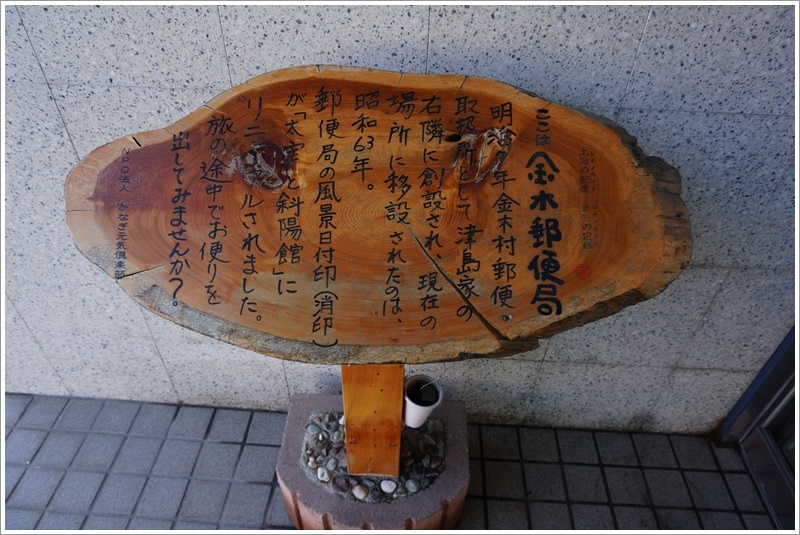 ここは金木郵便局
明治7年金木村郵便
取扱所として津島家の
右隣に創設され、現在の
場所に移設されたのは、
昭和63年。
郵便局の風景日付印(消印)
が「太宰と斜陽館」に
リニューアルされました。
旅の途中でお便りを
出してみませんか?。
NPO法人 かなぎ元気倶楽部